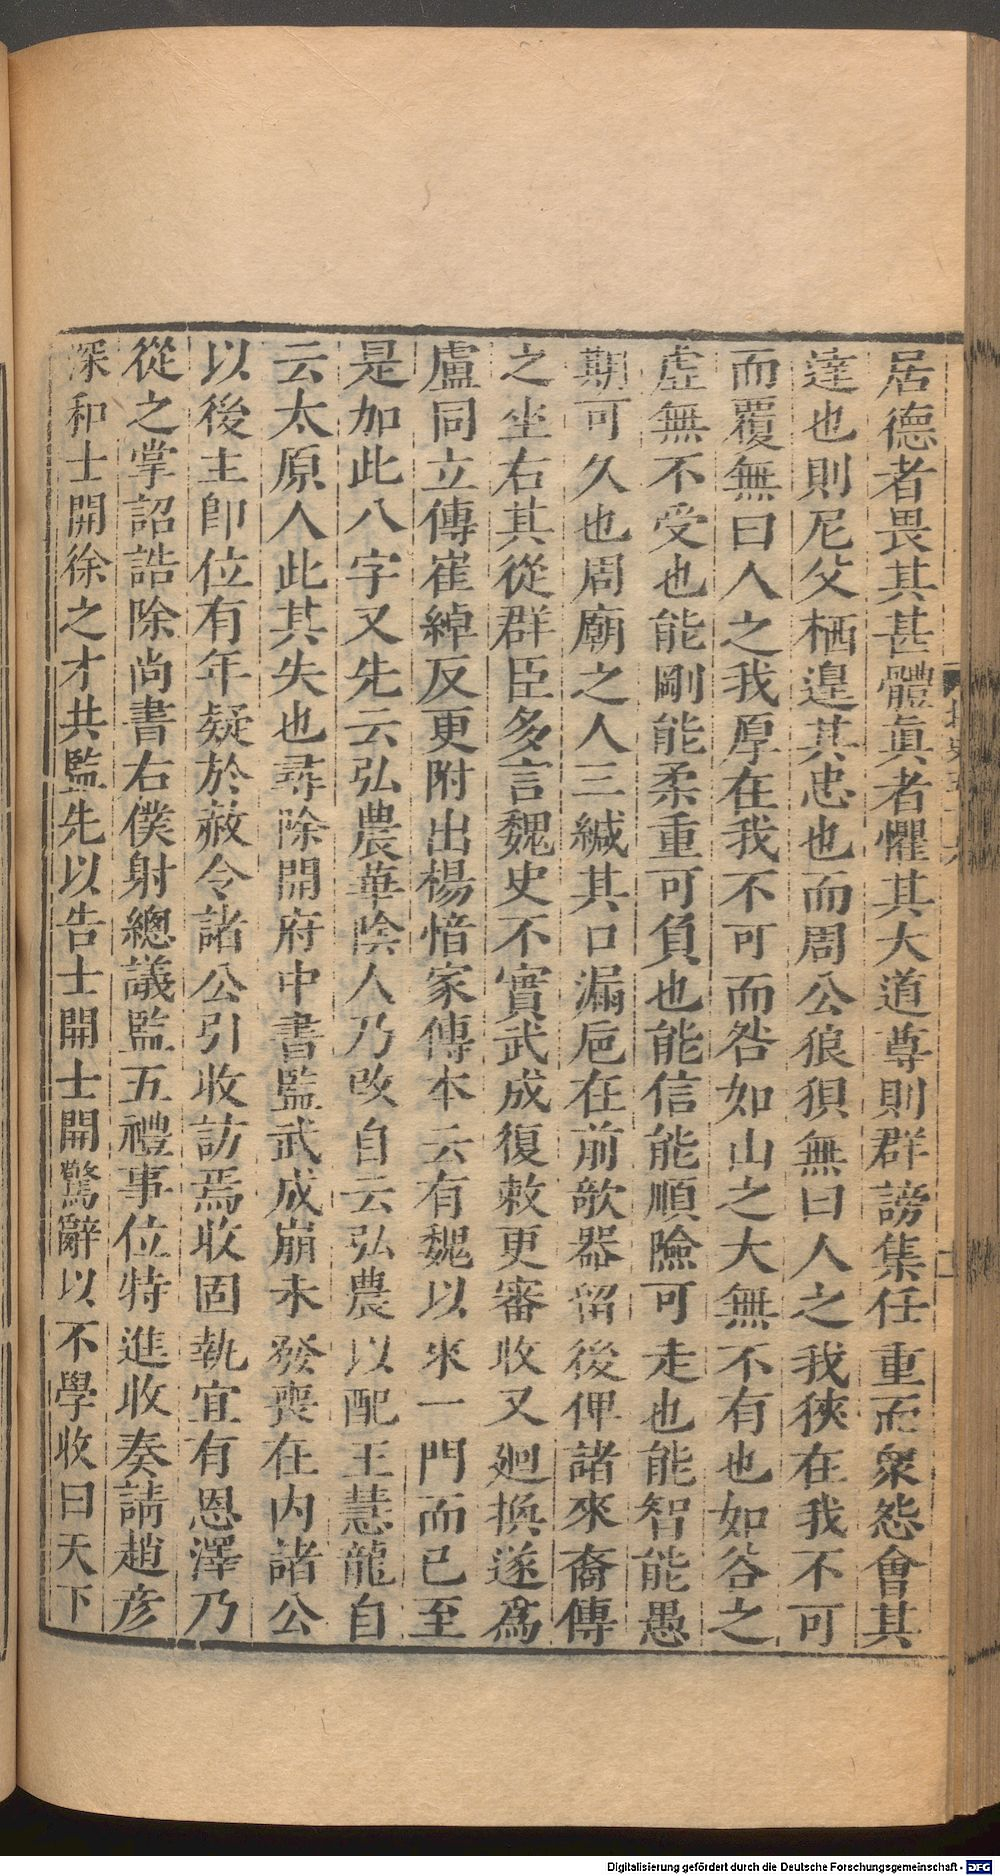 居德者畏其甚體真者懼其大道尊則群謗集任重而衆怨會其
達也則尼父栖遑其忠也而周公狼狽無曰人之我狹在我不可
而覆無曰人之我厚在我不可而咎如山之大無不有也如谷之
虛無不受也能剛能柔重可負也能信能順險可走也能智能愚
期可久也周廟之人三緘其口漏巵在前欹器留後俾諸來裔傳
之坐右其從群臣多言魏史不實武成復敕更審收又廻換遂爲
盧同立傳崔綽反更附出楊愔家傳本云有魏以來一門而已至
是加此八字又先云弘農華陰人乃改自云弘農以配王慧龍自
云太原人此其失也尋除開府中書監武成崩未發喪在内諸公
以後主卽位有年疑於赦令諸公引收訪焉收固執宜有恩澤乃
從之掌詔誥除尚書右僕射總議監五禮事位特進收奏請趙彦
深和士開徐之才共監先以告士開士開驚辭以不學收曰天下
Digitalisierung gefördert durch die Deutsche Forschungsgemeinschaft - DFG